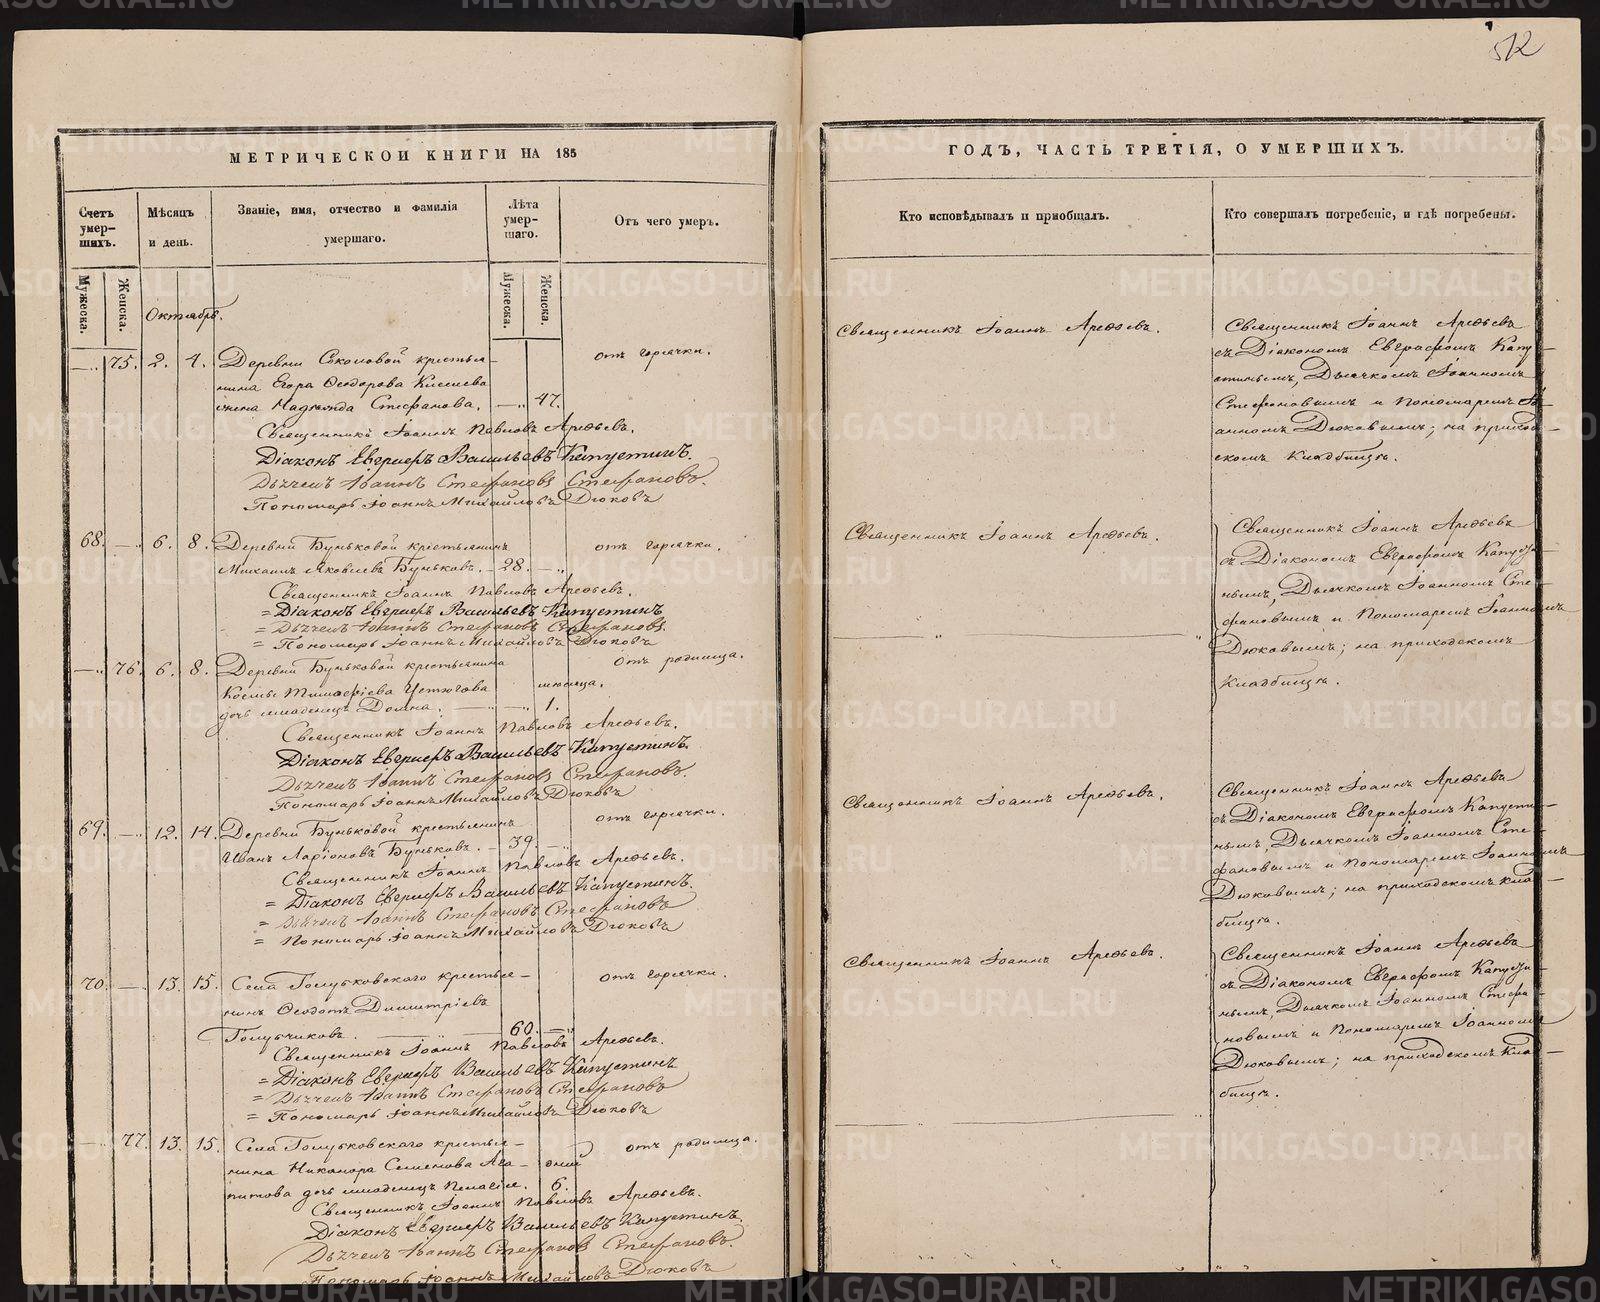 512
МЕТРИЧЕСКОЙ КНИГИ НА 185
ГОДЪ, ЧАСТЬ ТРЕТІЯ, О УМЕРШИХЪ.
Счетъ умер-шихъ.
Мѣсяцъ и день.
Званіе, имя, отчество и фамилія умершаго.
Лѣта умер-шаго.
Отъ чего умеръ.
Кто исповѣдывалъ и пріобщалъ.
Кто совершалъ погребеніе, и гдѣ погребены.
Мужеска.
Женска.
Мужеска.
Женска.
Октябрь.
75. 2. 4. Деревни Соколовой крестья-
нина Егора Ѳедорова Киселева
жена Надежда Стефанова. 47.
отъ горячки.
Священникъ Іоаннъ Павловъ Арефьевъ.
Діаконъ Евграфъ Васильевъ Капустинъ.
Дьячекъ Іоаннъ Стефановъ Стефановъ.
Пономарь Іоаннъ Михайловъ Дюковъ
Священникъ Іоаннъ Арефьевъ.
Священникъ Іоаннъ Арефьевъ
съ Діакономъ Евграфомъ Капу-
стинымъ, Дьячкомъ Іоанномъ
Стефановымъ и Пономаремъ Іо-
анномъ Дюковымъ; на приход-
скомъ Кладбищѣ.
68. 6. 8. Деревни Буньковой крестьянинъ
Михаилъ Яковлевъ Буньковъ. 28.
отъ горячки.
Священникъ Іоаннъ Павловъ Арефьевъ.
= Діаконъ Евграфъ Васильевъ Капустинъ
= Дьячекъ Іоаннъ Стефановъ Стефановъ.
= Пономарь Іоаннъ Михайловъ Дюковъ
Священникъ Іоаннъ Арефьевъ.
Священникъ Іоаннъ Арефьевъ
съ Діакономъ Евграфомъ Капусти-
нымъ, Дьячкомъ Іоанномъ Сте-
фановымъ и Пономаремъ Іоанномъ
Дюковымъ; на приходскомъ
Кладбищѣ.
76. 6. 8. Деревни Буньковой крестьянина
Козмы Тимофѣева Устюгова
дочь младенецъ Домна. мѣсяца. 1.
отъ родимца.
Священникъ Іоаннъ Павловъ Арефьевъ.
Діаконъ Евграфъ Васильевъ Капустинъ.
Дьячекъ Іоаннъ Стефановъ Стефановъ.
Пономарь Іоаннъ Михайловъ Дюковъ
69. 12. 14. Деревни Буньковой крестьянинъ
Иванъ Ларіоновъ Буньковъ. 39.
отъ горячки.
Священникъ Іоаннъ Павловъ Арефьевъ.
= Діаконъ Евграфъ Васильевъ Капустинъ.
= Дьячекъ Іоаннъ Стефановъ Стефановъ
= Пономарь Іоаннъ Михайловъ Дюковъ
Священникъ Іоаннъ Арефьевъ.
Священникъ Іоаннъ Арефьевъ
съ Діакономъ Евграфомъ Капусти-
нымъ, Дьячкомъ Іоанномъ Сте-
фановымъ и Пономаремъ Іоанномъ
Дюковымъ; на приходскомъ кла-
бищѣ.
70. 13. 15. Села Голубковского крестья-
нинъ Ѳедотъ Димитріевъ
Голубчиковъ. 60.
отъ горячки.
Священникъ Іоаннъ Павловъ Арефьевъ.
= Діаконъ Евграфъ Васильевъ Капустинъ
= Дьячекъ Іоаннъ Стефановъ Стефановъ
= Пономарь Іоаннъ Михайловъ Дюковъ
Священникъ Іоаннъ Арефьевъ.
Священникъ Іоаннъ Арефьевъ
съ Діакономъ Евграфомъ Капусти-
нымъ, Дьячкомъ Іоанномъ Стефа-
новымъ и Пономаремъ Іоанномъ
Дюковымъ; на приходскомъ Кла-
бищѣ.
77. 13. 15. Села Голубковского крестья-
нина Никанора Семенова Ага-
питова дочь младенецъ Пелагія. дней 6.
отъ родимца.
Священникъ Іоаннъ Павловъ Арефьевъ.
Діаконъ Евграфъ Васильевъ Капустинъ.
Дьячекъ Іоаннъ Стефановъ Стефановъ.
Пономарь Іоаннъ Михайловъ Дюковъ
METRIKI.GASO-URAL.RU